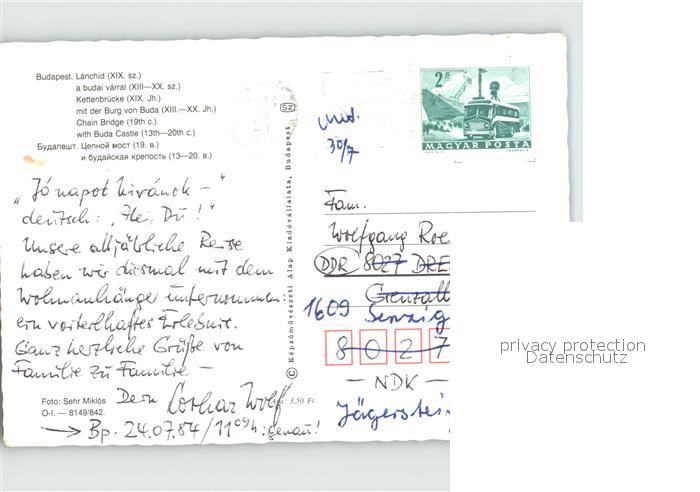 Budapest. Lánchíd (XIX. sz.)
a budai várral (XIII—XX. sz.)
Kettenbrücke (XIX. Jh.)
mit der Burg von Buda (XIII.—XX. Jh.)
Chain Bridge (19th c.)
with Buda Castle (13th—20th c.)
Будапешт. Цепной мост (19. в.)
и будайская крепость (13—20. в.)
„Jó napot kivánok —"
deutsch: „Hei, Du!"
Unsere alljährliche Reise
haben wir diesmal mit dem
Wohnanhänger unternommen:
ein vorteilhaftes Erlebnis.
Ganz herzliche Grüße von
Familie zu Familie —
Dein Lothar Wolf
→ Bp. 24.07.84/11⁰⁹h: genau!
Foto: Sehr Miklós
O-I. — 8149/842.
3,50 Ft
SZ
© Képzőművészeti Alap Kiadóvállalata, Budapest
2 Ft
MAGYAR POSTA
30/7
Fam.
Wolfgang Roe
DDR 8027 DRE
1609 Senzig
8027
— NDK —
Jägerstei
privacy protection
Datenschutz